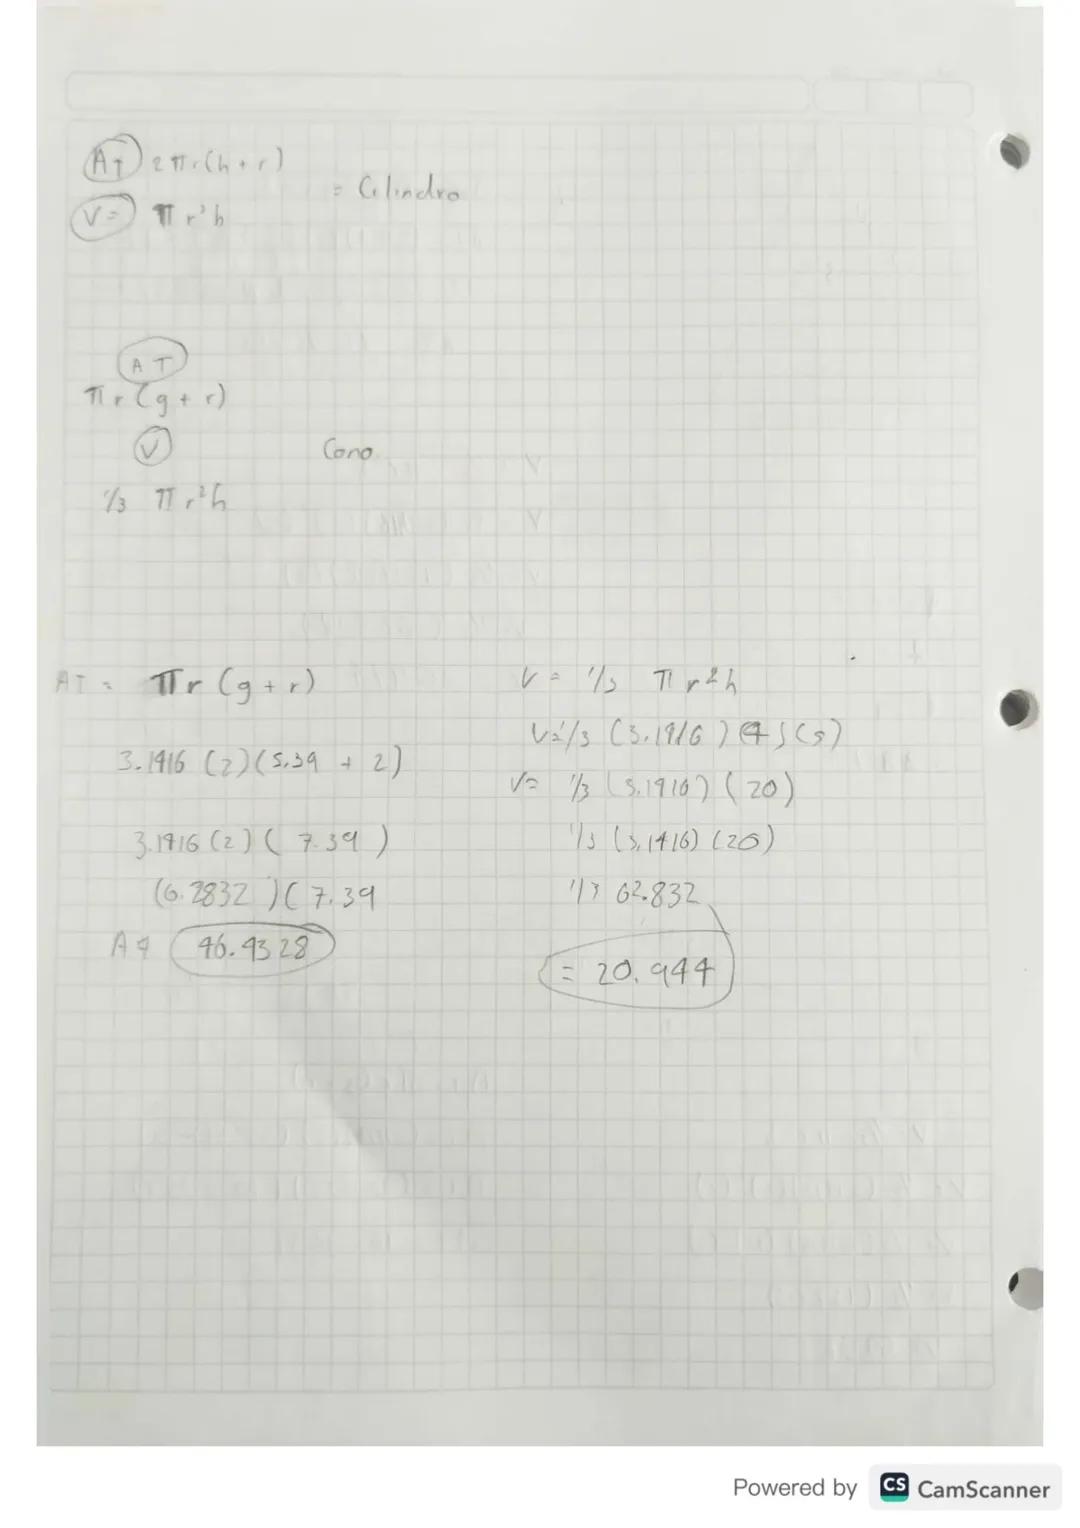 AT 2πr(h+r)
= Cilindro
V= πr²h
AT
πr(g+r)
V
Cono
1/3 πr²h
AT = πr (g+r)
3.1416 (2)(5.39 + 2)
3.1416 (2)( 7.39 )
(6.2832 )( 7.39
A4 46.4328
V = 1/3 πr²h
V=1/3 (3.1416)(4)(5)
V= 1/3 (3.1416) (20)
1/3 (3.1416) (20)
1/3 62.832
= 20.944
Powered by CS CamScanner